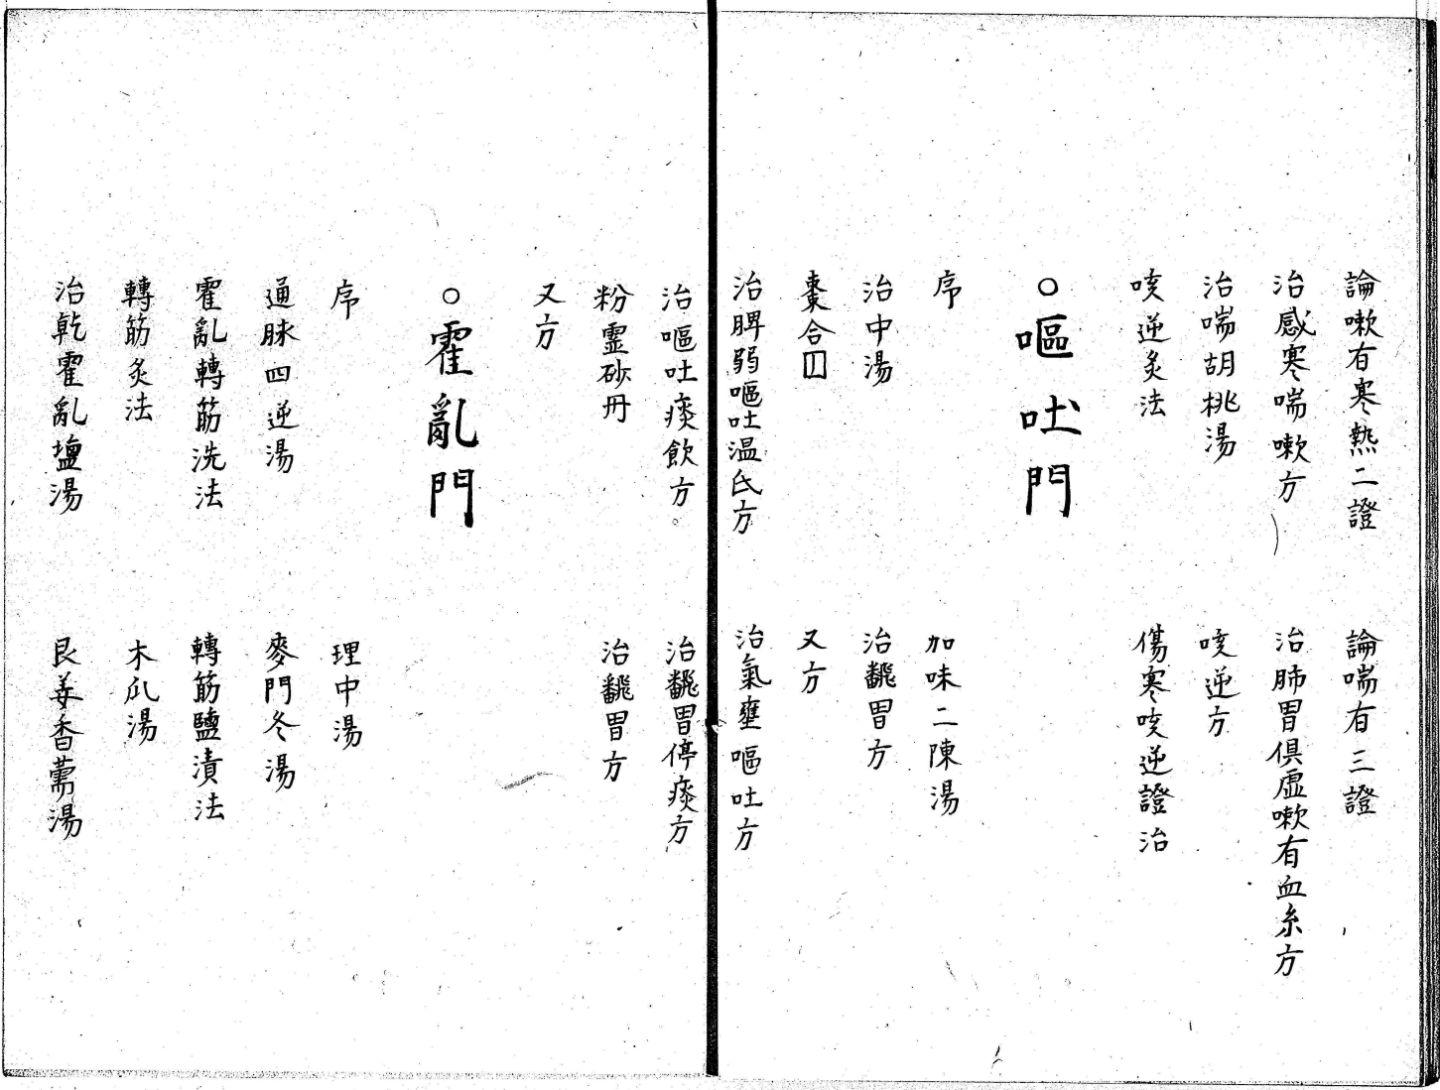 論嗽有寒熱二證　論喘有三證
治感寒喘嗽方　治肺胃俱虛嗽有血糸方
治喘胡桃湯　咳逆方
咳逆灸法　傷寒咳逆證治
○嘔吐門
序　加味二陳湯
治中湯　治飜胃方
棗合　又方
治脾弱嘔吐温氏方　治氣壅嘔吐方
治嘔吐痰飲方　治飜胃停痰方
粉霊砂丹　治飜胃方
又方
○霍亂門
序　理中湯
通脉四逆湯　麥門冬湯
霍亂轉筋洗法　轉筋鹽漬法
轉筋灸法　木瓜湯
治乾霍亂塩湯　良姜香薷湯